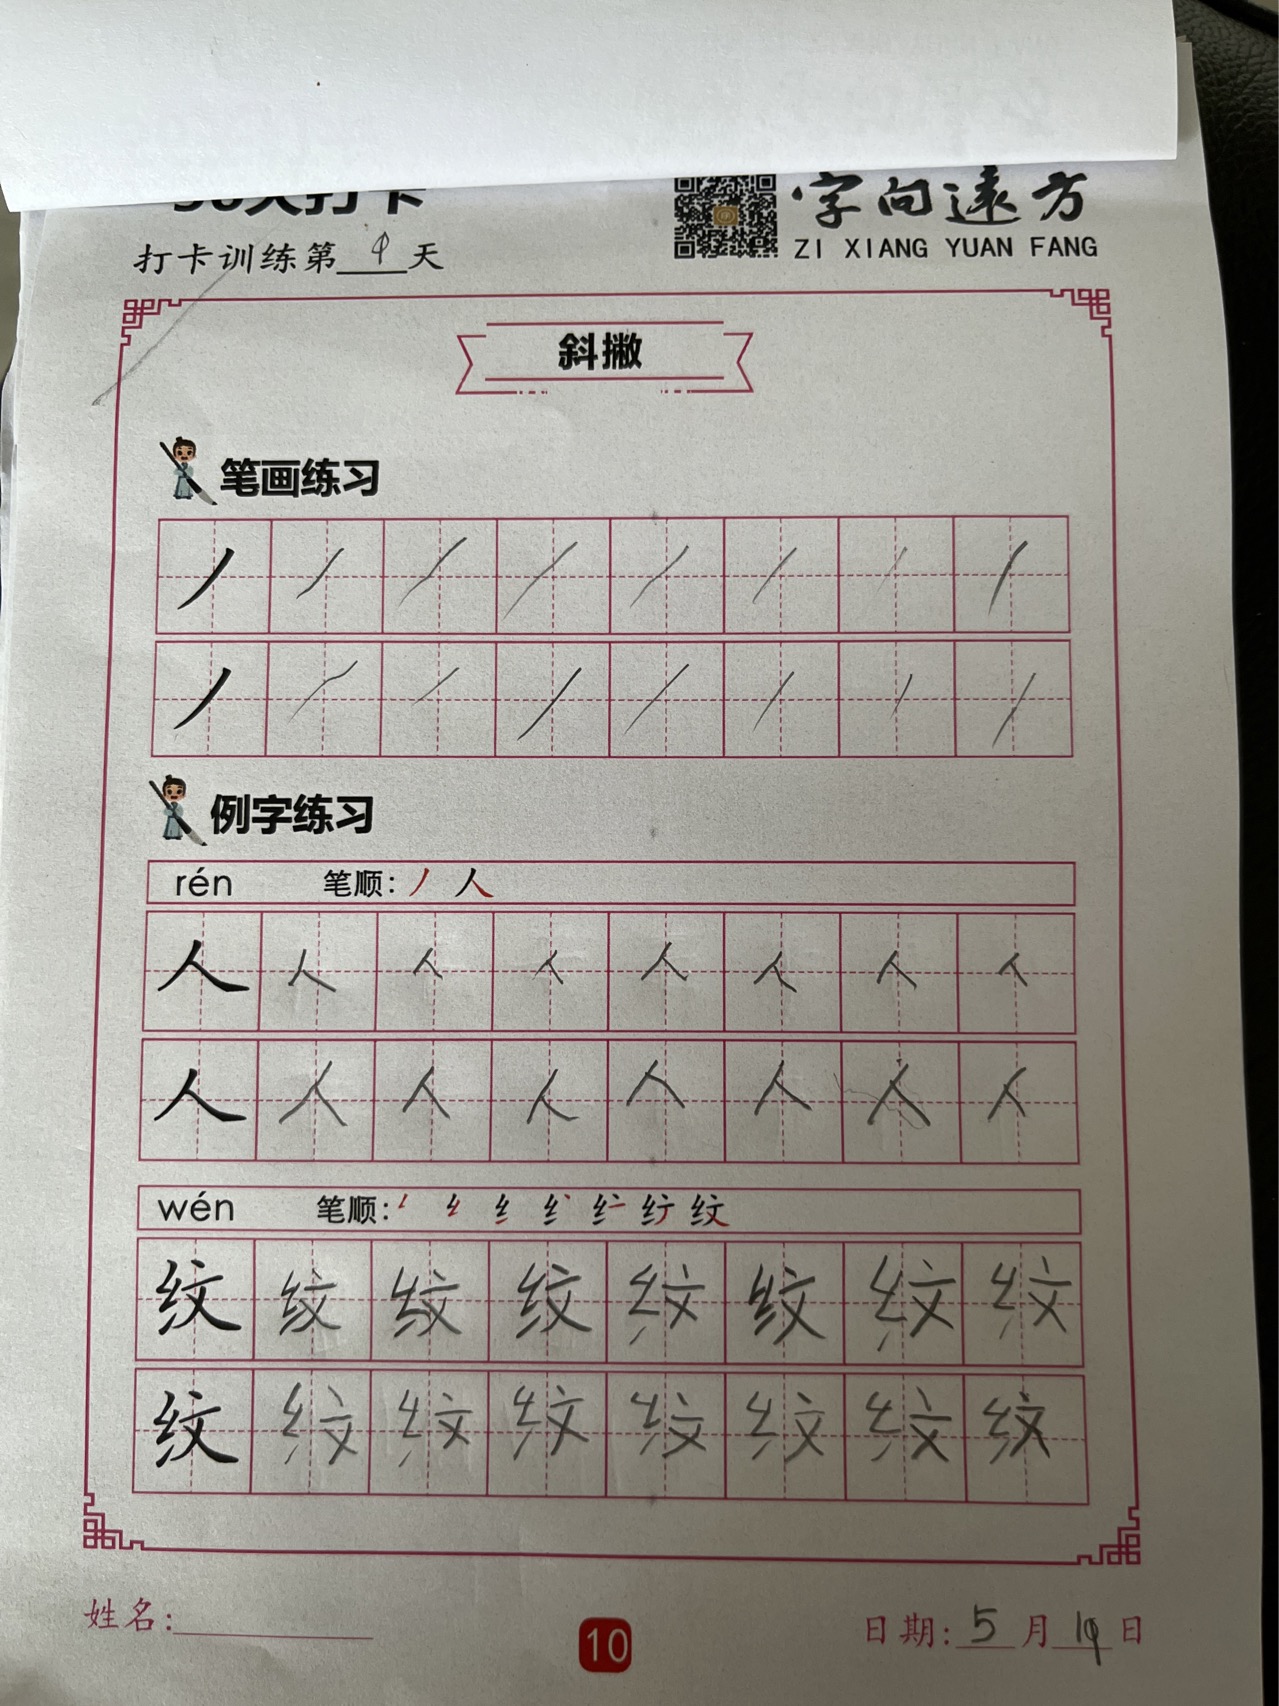 打卡训练第 9 天
字向远方
ZI XIANG YUAN FANG
斜撇
笔画练习
丿 丿 丿 丿 丿 丿 丿 丿
丿 丿 丿 丿 丿 丿 丿 丿
例字练习
rén 笔顺: 丿 人
人 人 人 人 人 人 人 人
人 人 人 人 人 人 人 人
wén 笔顺: 纹
纹 纹 纹 纹 纹 纹 纹 纹
纹 纹 纹 纹 纹 纹 纹 纹
姓名:
10
日期: 5 月 19 日